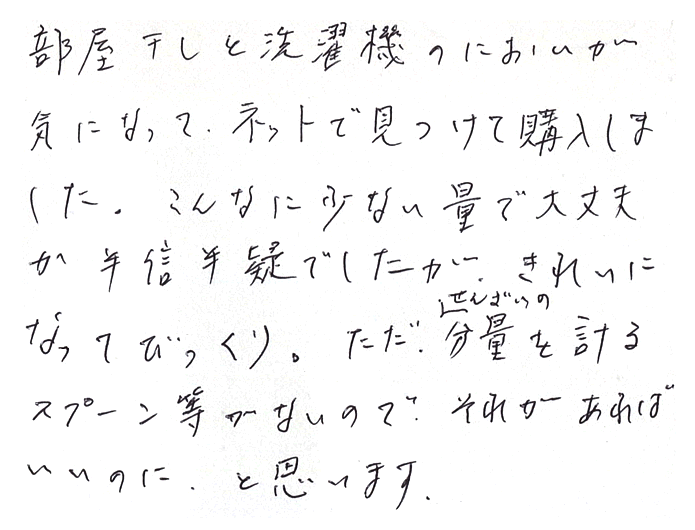 部屋干しと洗濯機のにおいが
気になって、ネットで見つけて購入しま
した。こんなに少ない量で大丈夫
か半信半疑でしたが、きれいに
なってびっくり。ただ、せんざいの分量を計る
スプーン等がないので、それがあれば
いいのに、と思います。